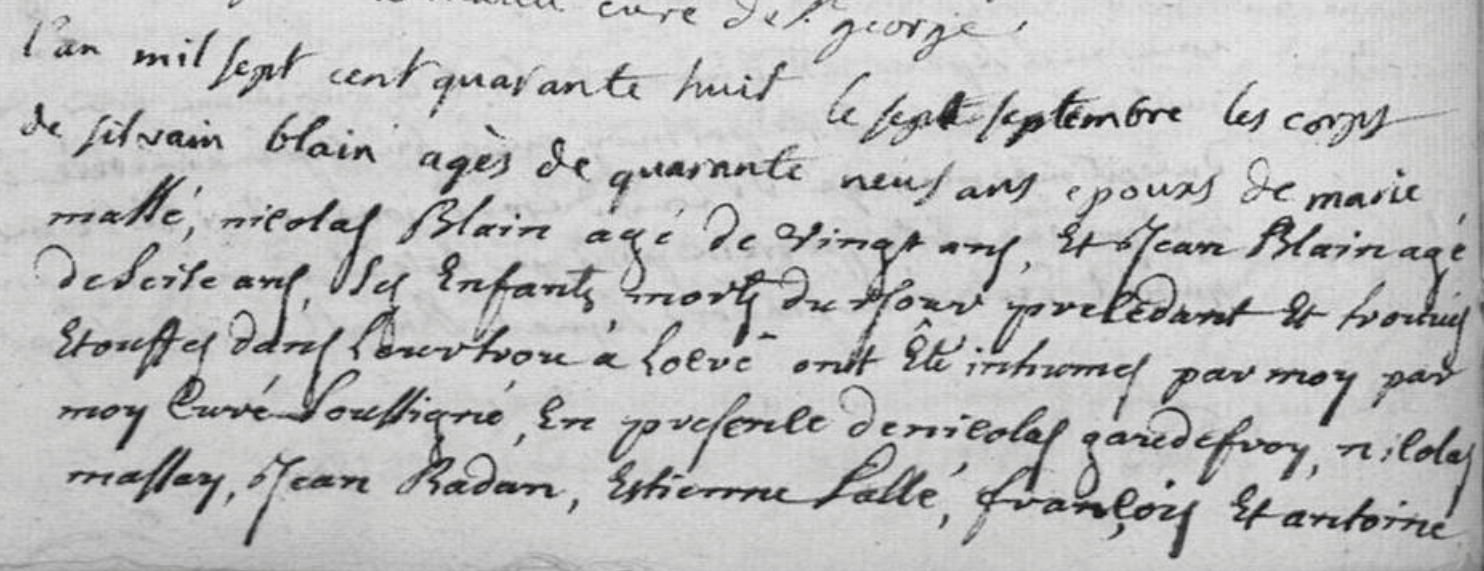 curé de St george
l'an mil sept cent quarante huit le sept septembre les corps
de silvain blain agès de quarante neuf ans epoux de marie
massé, nicolas Blain agé de vingt ans, Et Jean Blain agé
de seise ans, Ses Enfants morts du jour precedant Et trouvés
Etouffés dans Leur trou à ont Eté inhumés par moy par
moy Curé Soussigné, En presence de nicolas godefroy, nicolas
massay, Jean Radan, Estienne Sallé, françois Et antoine